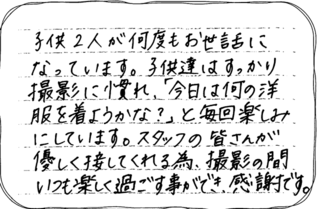 子供2人が何度もお世話に
なっています。子供達はすっかり
撮影に慣れ、「今日は何の洋
服を着ようかな?」と毎回楽しみ
にしています。スタッフの皆さんが
優しく接してくれる為、撮影の間
いつも楽しく過ごす事ができ、感謝です。